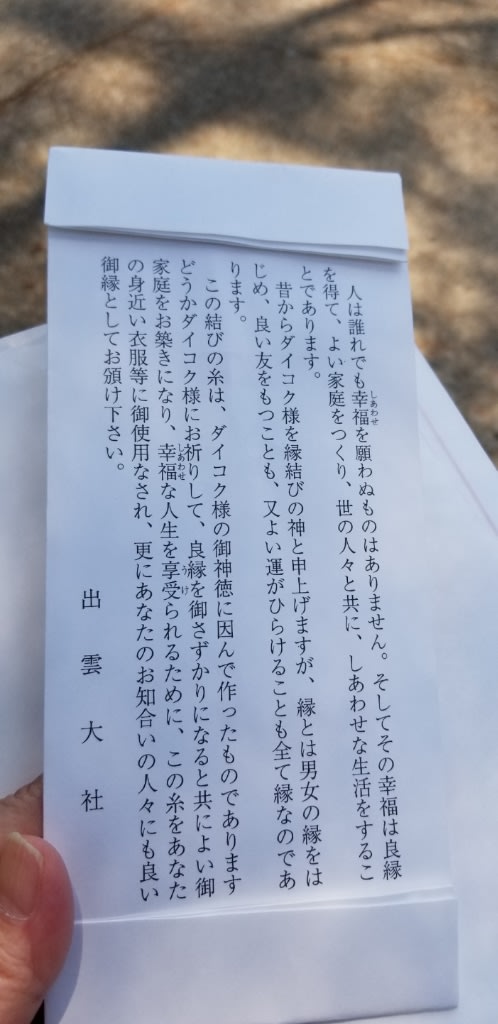 人は誰れでも幸福を願わぬものはありません。そしてその幸福は良縁
を得て、よい家庭をつくり、世の人々と共に、しあわせな生活をするこ
とであります。
昔からダイコク様を縁結びの神と申上げますが、縁とは男女の縁をは
じめ、良い友をもつことも、又よい運がひらけることも全て縁なのであ
ります。
この結びの糸は、ダイコク様の御神徳に因んで作ったものであります
どうかダイコク様にお祈りして、良縁を御さずかりになると共によい御
家庭をお築きになり、幸福な人生を享受られるために、この糸をあなた
の身近い衣服等に御使用なされ、更にあなたのお知合いの人々にも良い
御縁としてお頒け下さい。
出雲大社